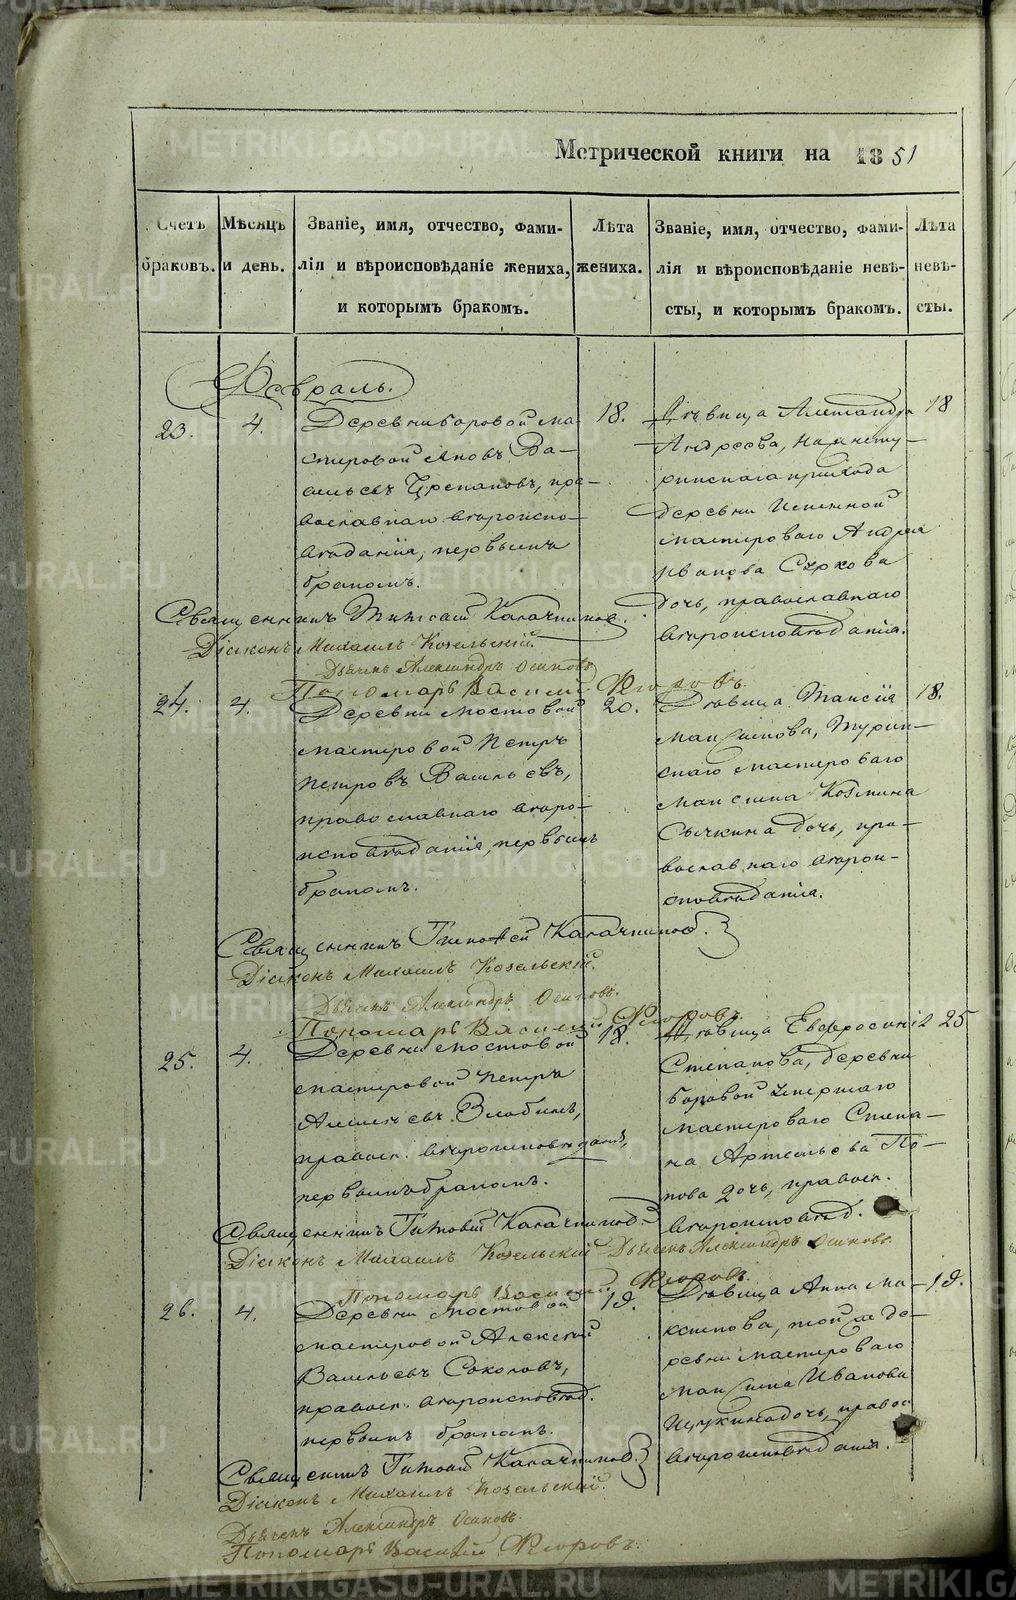 Метрической книги на 1851
Счетъ браковъ.
Мѣсяцъ и день.
Званіе, имя, отчество, фами-
лія и вѣроисповѣданіе жениха,
и которымъ бракомъ.
Лѣта жениха.
Званіе, имя, отчество, фами-
лія и вѣроисповѣданіе невѣ-
сты, и которымъ бракомъ.
Лѣта невѣ-
сты.
Февраль.
23.
4.
Деревни боровой ма-
стеровой Яковъ Ва-
сильевъ Черепановъ, пра-
вославнаго вѣроиспо-
вѣданія, первымъ
бракомъ.
18.
Дѣвица Александра
Андреева,
прихода
деревни
мастероваго Андрея
Иванова Суркова
дочь, православнаго
вѣроисповѣданія.
18
Священникъ Калачниковъ.
Діаконъ Михаилъ Козельскій.
Дьячекъ Александръ Осиповъ
Пономарь Василій Ѳедоровъ.
24.
4.
Деревни мостовой
мастеровой Петръ
Петровъ Васильевъ,
православнаго вѣро-
исповѣданія, первымъ
бракомъ.
20.
Дѣвица Таисія
Максимова, Турин-
скаго мастероваго
Максима Козмина
Сычкина дочь, пра-
вославнаго вѣрои-
сповѣданія.
18.
Священникъ Калачниковъ.
Діаконъ Михаилъ Козельскій.
Дьячекъ Александръ Осиповъ.
Пономарь Василій Ѳедоровъ.
25.
4.
Деревни мостовой
мастеровой Петръ
Алексѣевъ Злобинъ,
правосл. вѣроисповѣданія,
первымъ бракомъ.
18.
Дѣвица Евфросинія
Степанова, деревни
боровой умершаго
мастероваго Степа-
на Артемьева По-
пова дочь, правосл.
вѣроисповѣд.
25
Священникъ Калачниковъ.
Діаконъ Михаилъ Козельскій Дьячекъ Александръ Осиповъ.
Пономарь Василій Ѳедоровъ.
26.
4.
Деревни мостовой
мастеровой Алексѣй
Васильевъ Соколовъ,
правосл. вѣроисповѣд.
первымъ бракомъ.
19.
Дѣвица Анна Ма-
ксимова, той же де-
ревни мастероваго
Максима Иванова
Щукина дочь, правос
вѣроисповѣданія.
19.
Священникъ Калачниковъ.
Діаконъ Михаилъ Козельскій.
Дьячекъ Александръ Осиповъ.
Пономарь Василій Ѳедоровъ.
METRIKI.GASO-URAL.RU